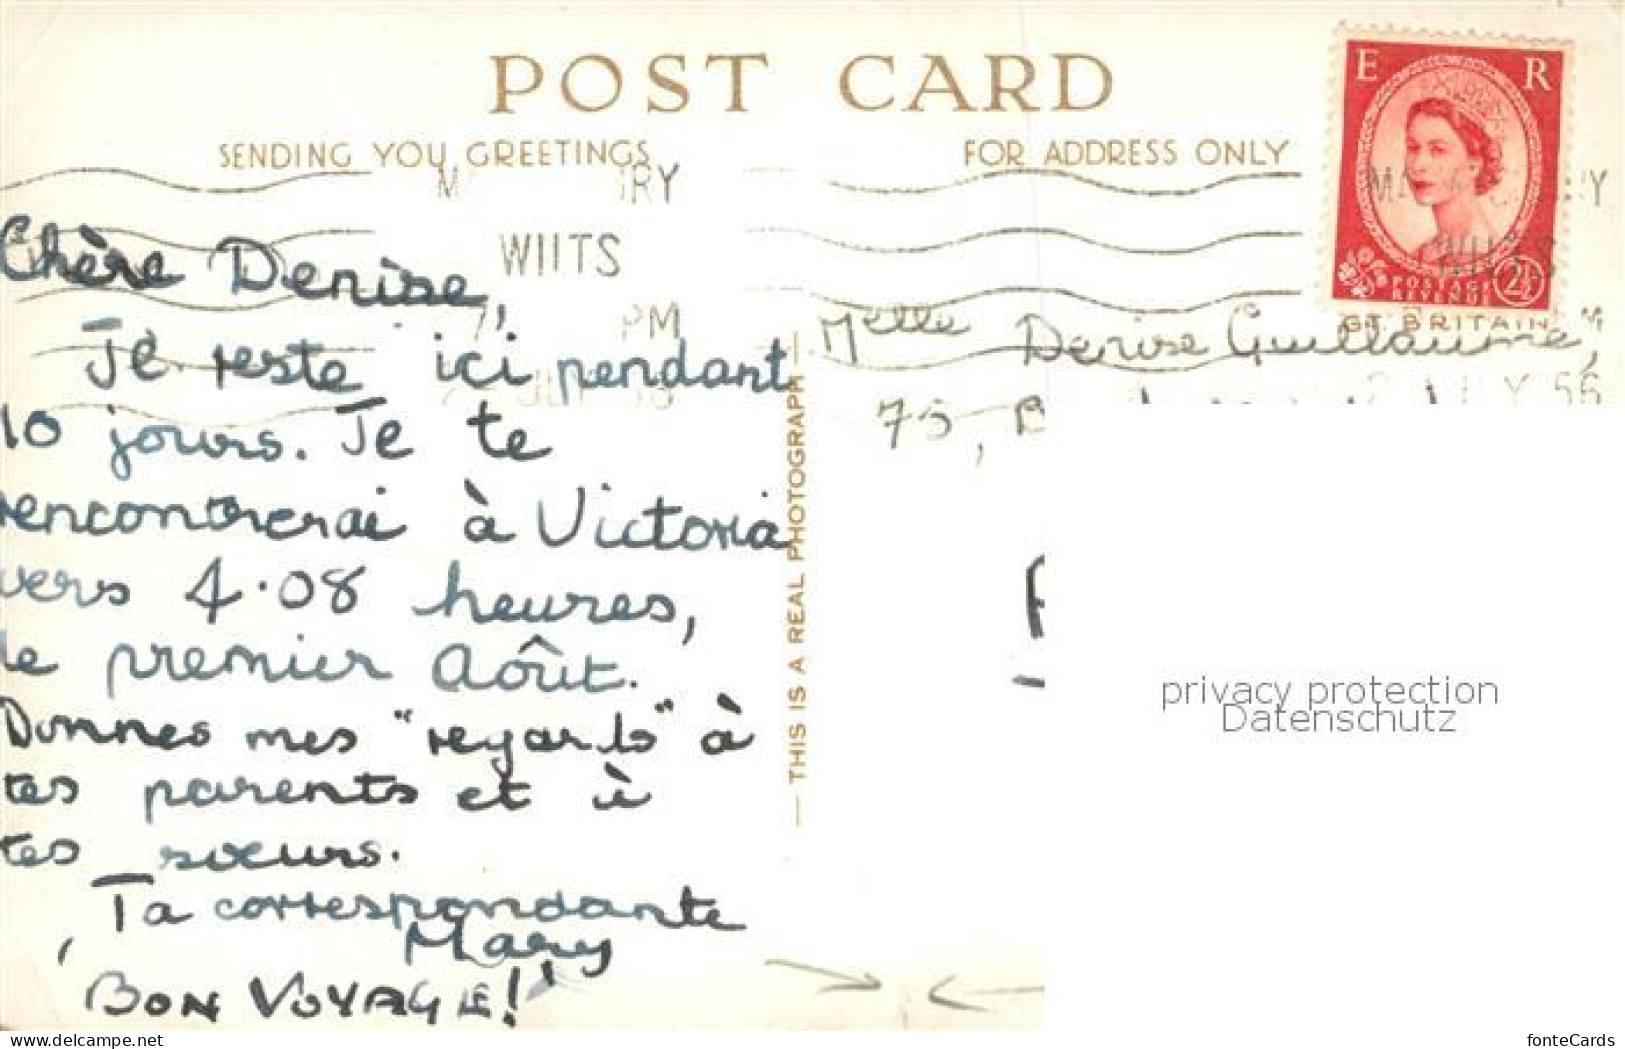 POST CARD
SENDING YOU GREETINGS
FOR ADDRESS ONLY
E R
POSTAGE
REVENUE
2½
GT BRITAIN
RY
WILTS
PM
WILTS
56
Chère Denise,
Je reste ici pendant
10 jours. Je te
rencontrerai à Victoria
vers 4.08 heures,
le premier Août.
Donnes mes "regards" à
tes parents et à
tes sœurs.
Ta correspondante
Mary
BON VOYAGE!
THIS IS A REAL PHOTOGRAPH
Melle Denise Guillaume,
75,
privacy protection
Datenschutz
www.delcampe.net
fonteCards